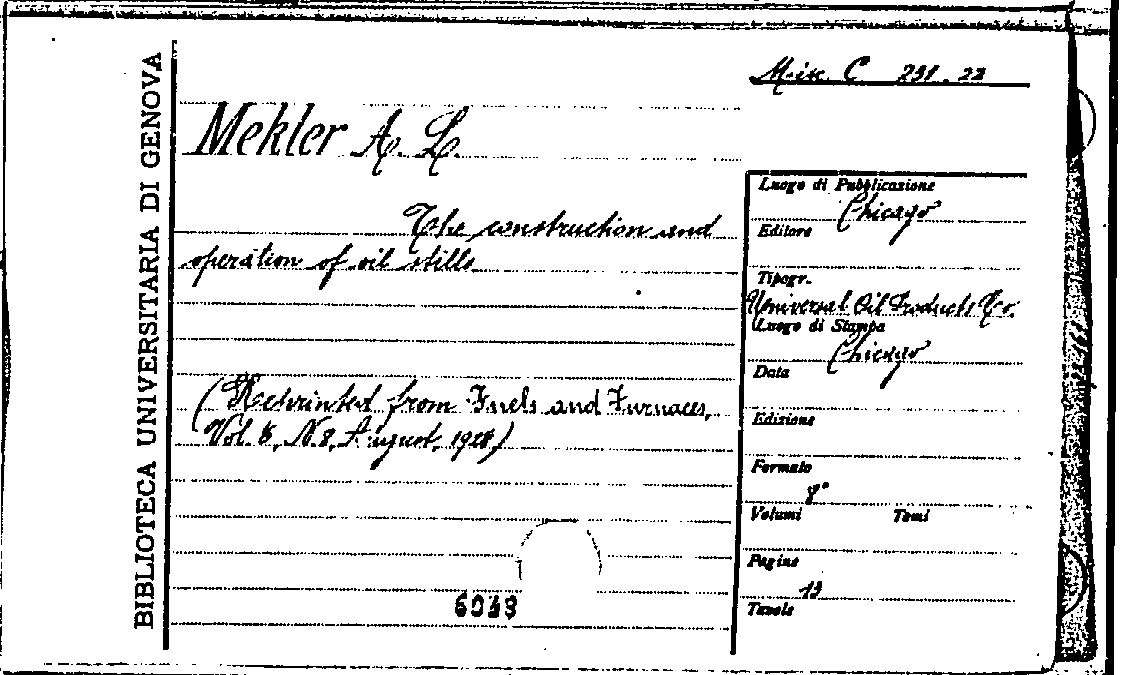 BIBLIOTECA UNIVERSITARIA DI GENOVA
Misc. C 291.22
Mekler A. L.
The construction and
operation of oil stills
(Reprinted from Fuels and Furnaces,
Vol. 6, N. 8, August, 1928)
Luogo di Pubblicazione
Chicago
Editore
Tipogr.
Universal Oil Products Co.
Luogo di Stampa
Chicago
Data
Edizione
Formato
8°
Volumi Tomi
Pagine
13
Tavole